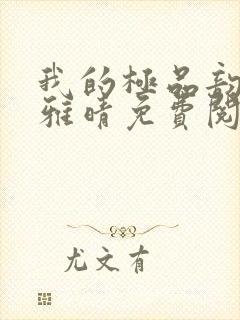 我的極品
雅晴免費閱
尤文有